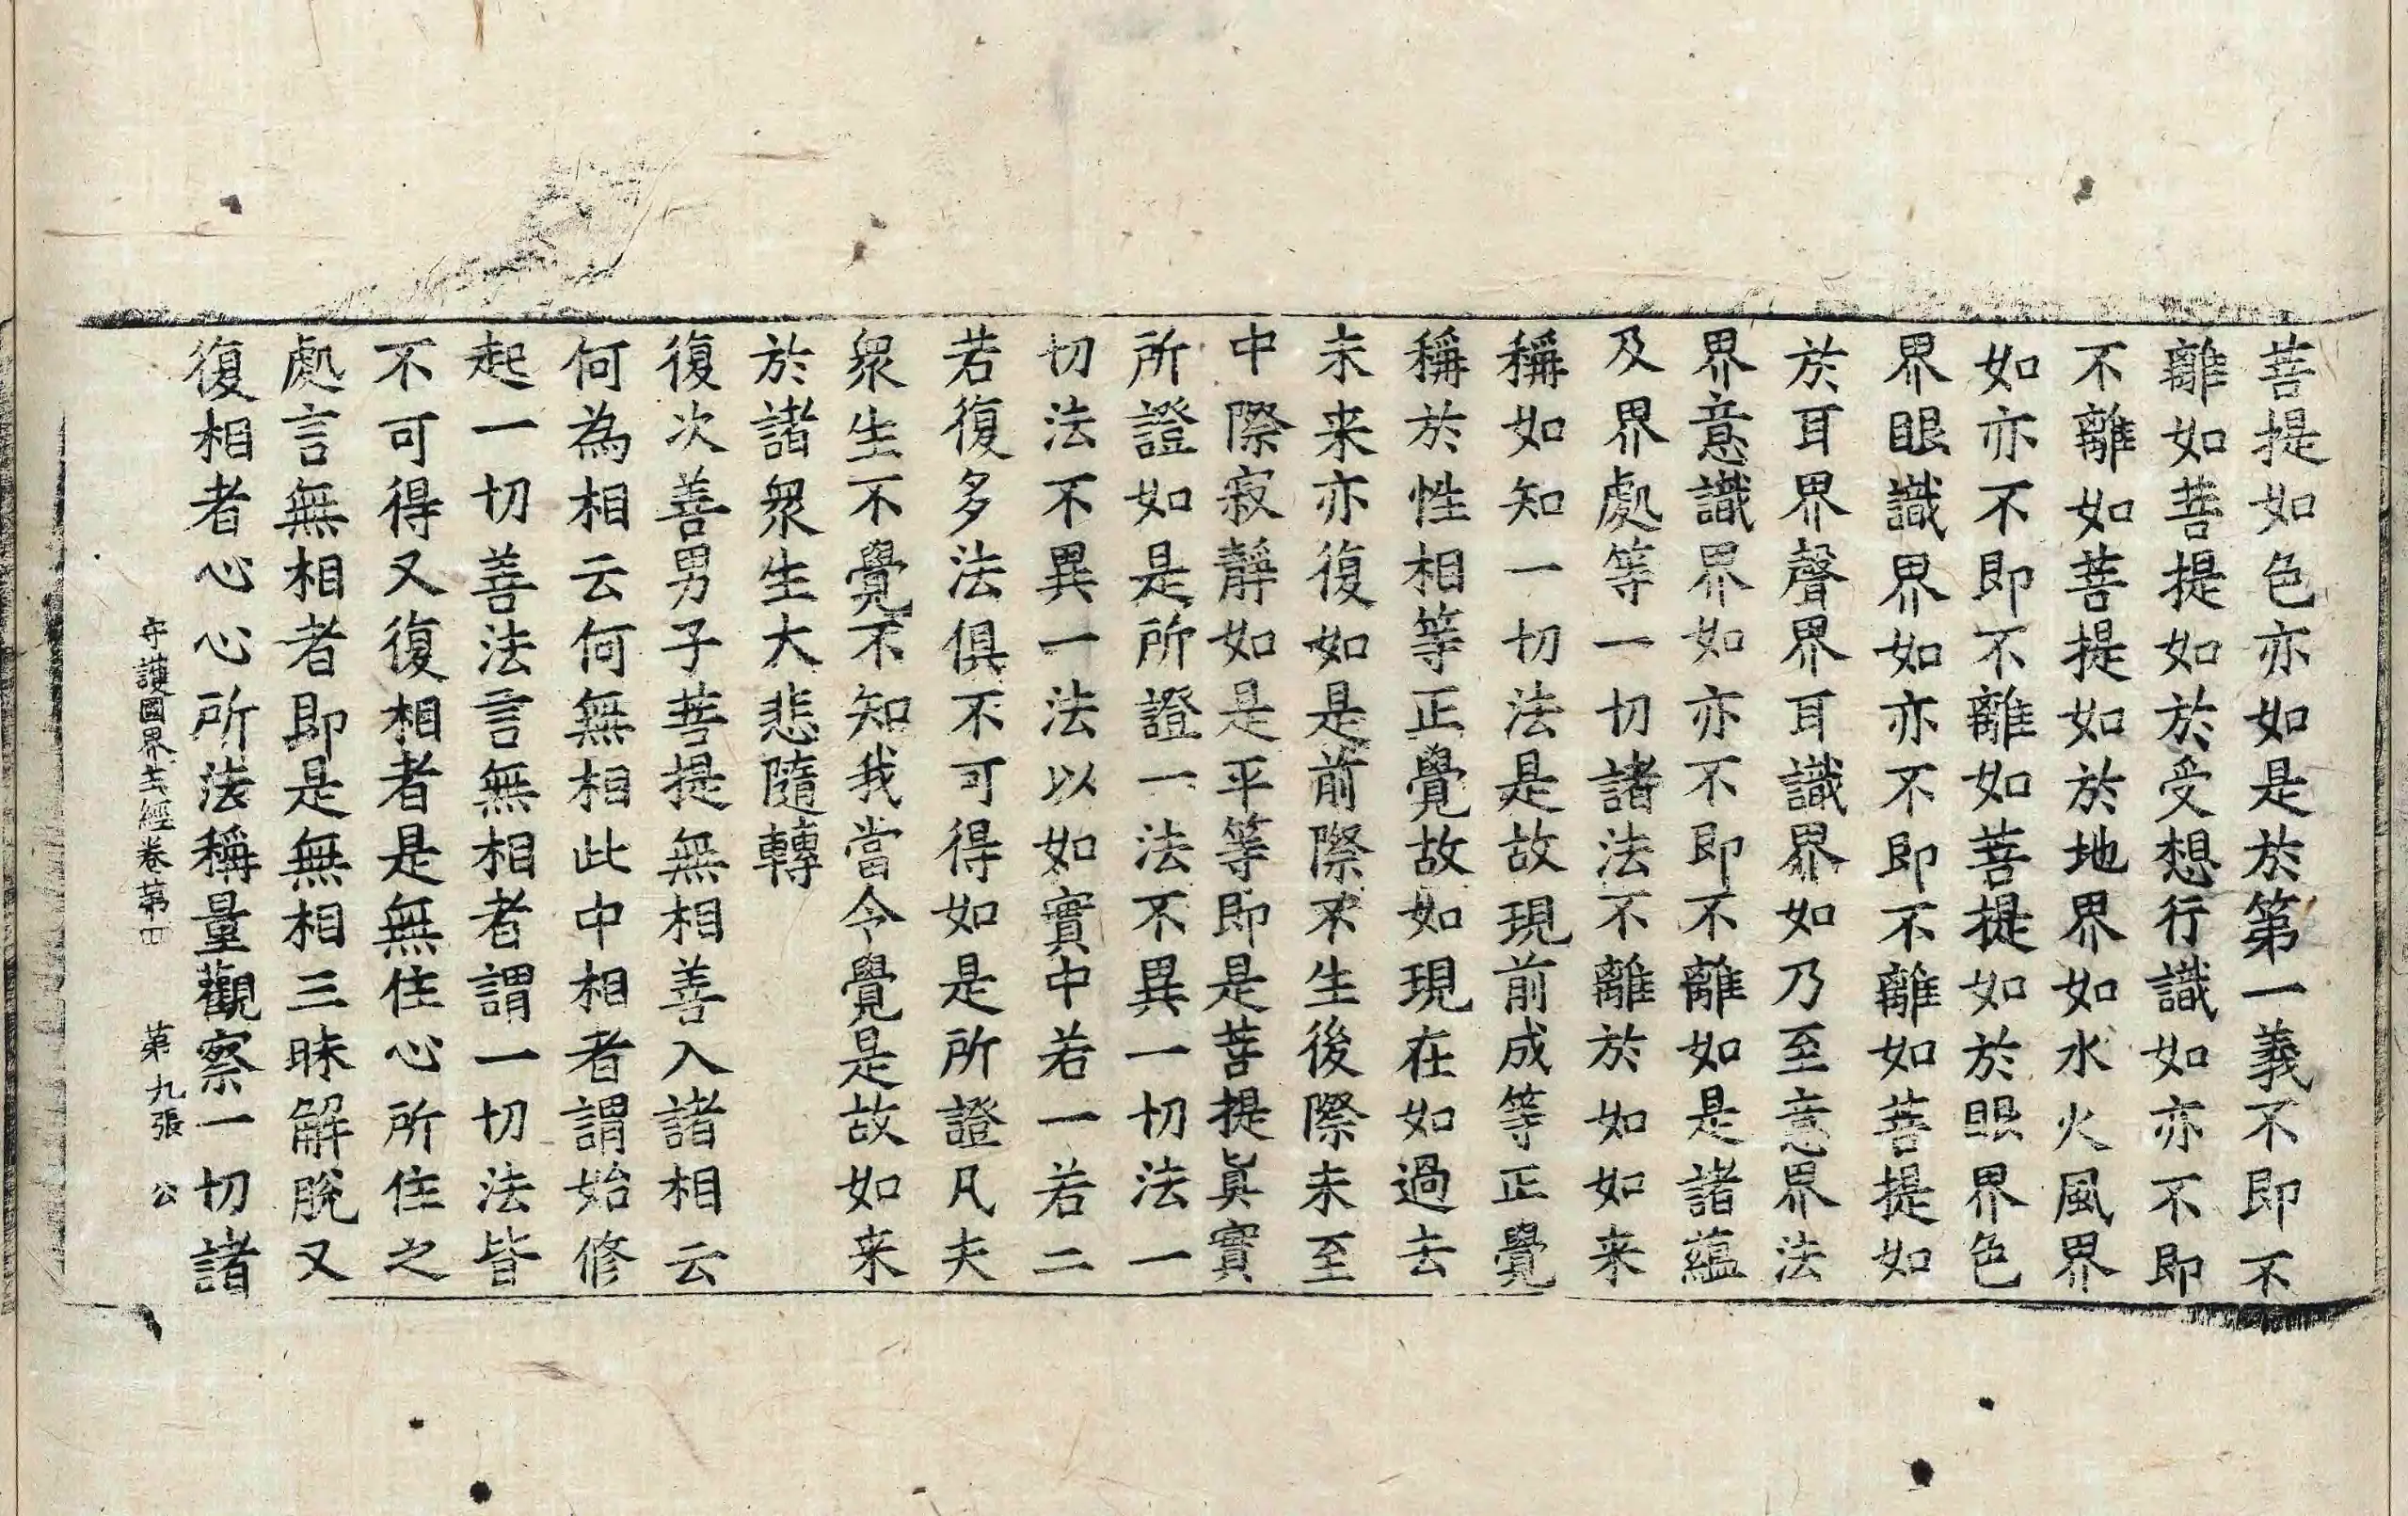 菩提如色亦如是於第一義不即不
離如菩提如於受想行識如亦不即
不離如菩提如於地界如水火風界
如亦不即不離如菩提如於眼界色
界眼識界如亦不即不離如菩提如
於耳界聲界耳識界如乃至意界法
界意識界如亦不即不離如是諸蘊
及界處等一切諸法不離於如如来
稱如知一切法是故現前成等正覺
稱於性相等正覺故如現在如過去
未来亦復如是前際不生後際未至
中際寂靜如是平等即是菩提眞實
所證如是所證一法不異一切法一
切法不異一法以如實中若一若二
若復多法俱不可得如是所證凡夫
衆生不覺不知我當令覺是故如来
於諸衆生大悲隨轉
復次善男子菩提無相善入諸相云
何為相云何無相此中相者謂始修
起一切善法言無相者謂一切法皆
不可得又復相者是無住心所住之
處言無相者即是無相三昧解脫又
復相者心心所法稱量觀察一切諸
守護國界主經卷第四 第九張 公